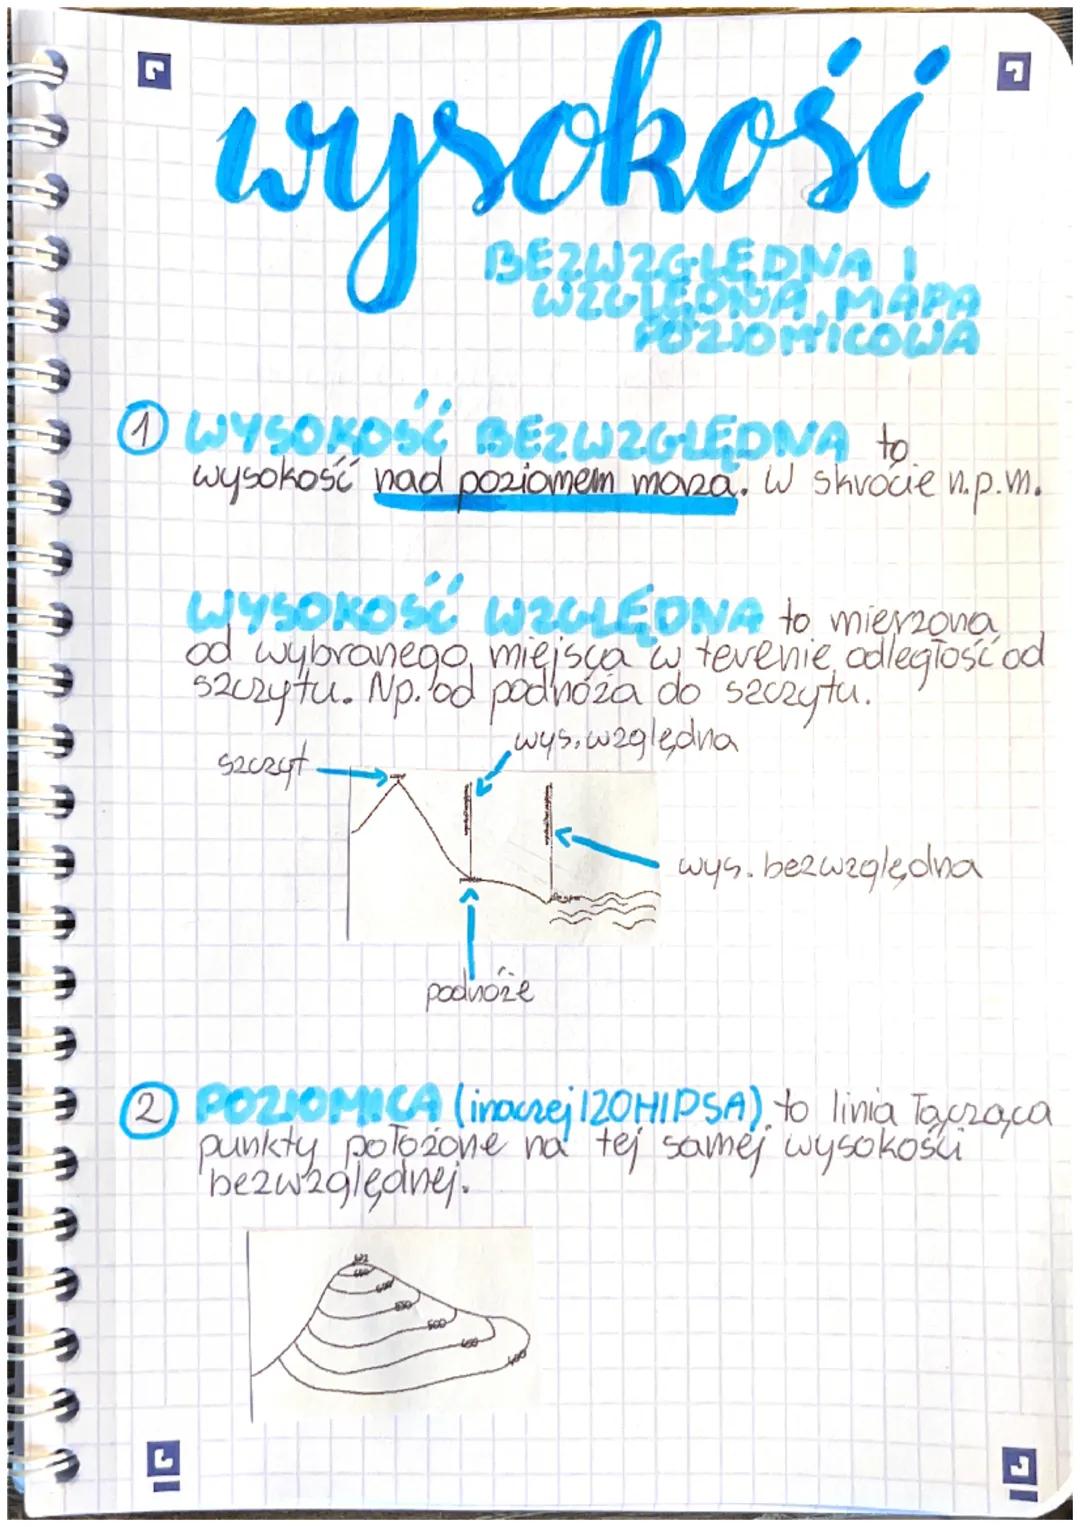 wysokość
BEZWZGLĘDNA I
WZGLĘDNA, MAPA
POZIOMICOWA
① WYSOKOŚĆ BEZWZGLĘDNA to
wysokość nad poziomem morza. W skrócie n.p.m.
WYSOKOŚĆ WZGLĘDNA to mierzona
od wybranego miejsca w terenie odległość od
szczytu. Np. od podnóża do szczytu.
wys. względna
szczyt
wys. bezwzględna
podnóże
② POZIOMICA (inaczej IZOHIPSA) to linia łącząca
punkty położone na tej samej wysokości
bezwzględnej.
500
400